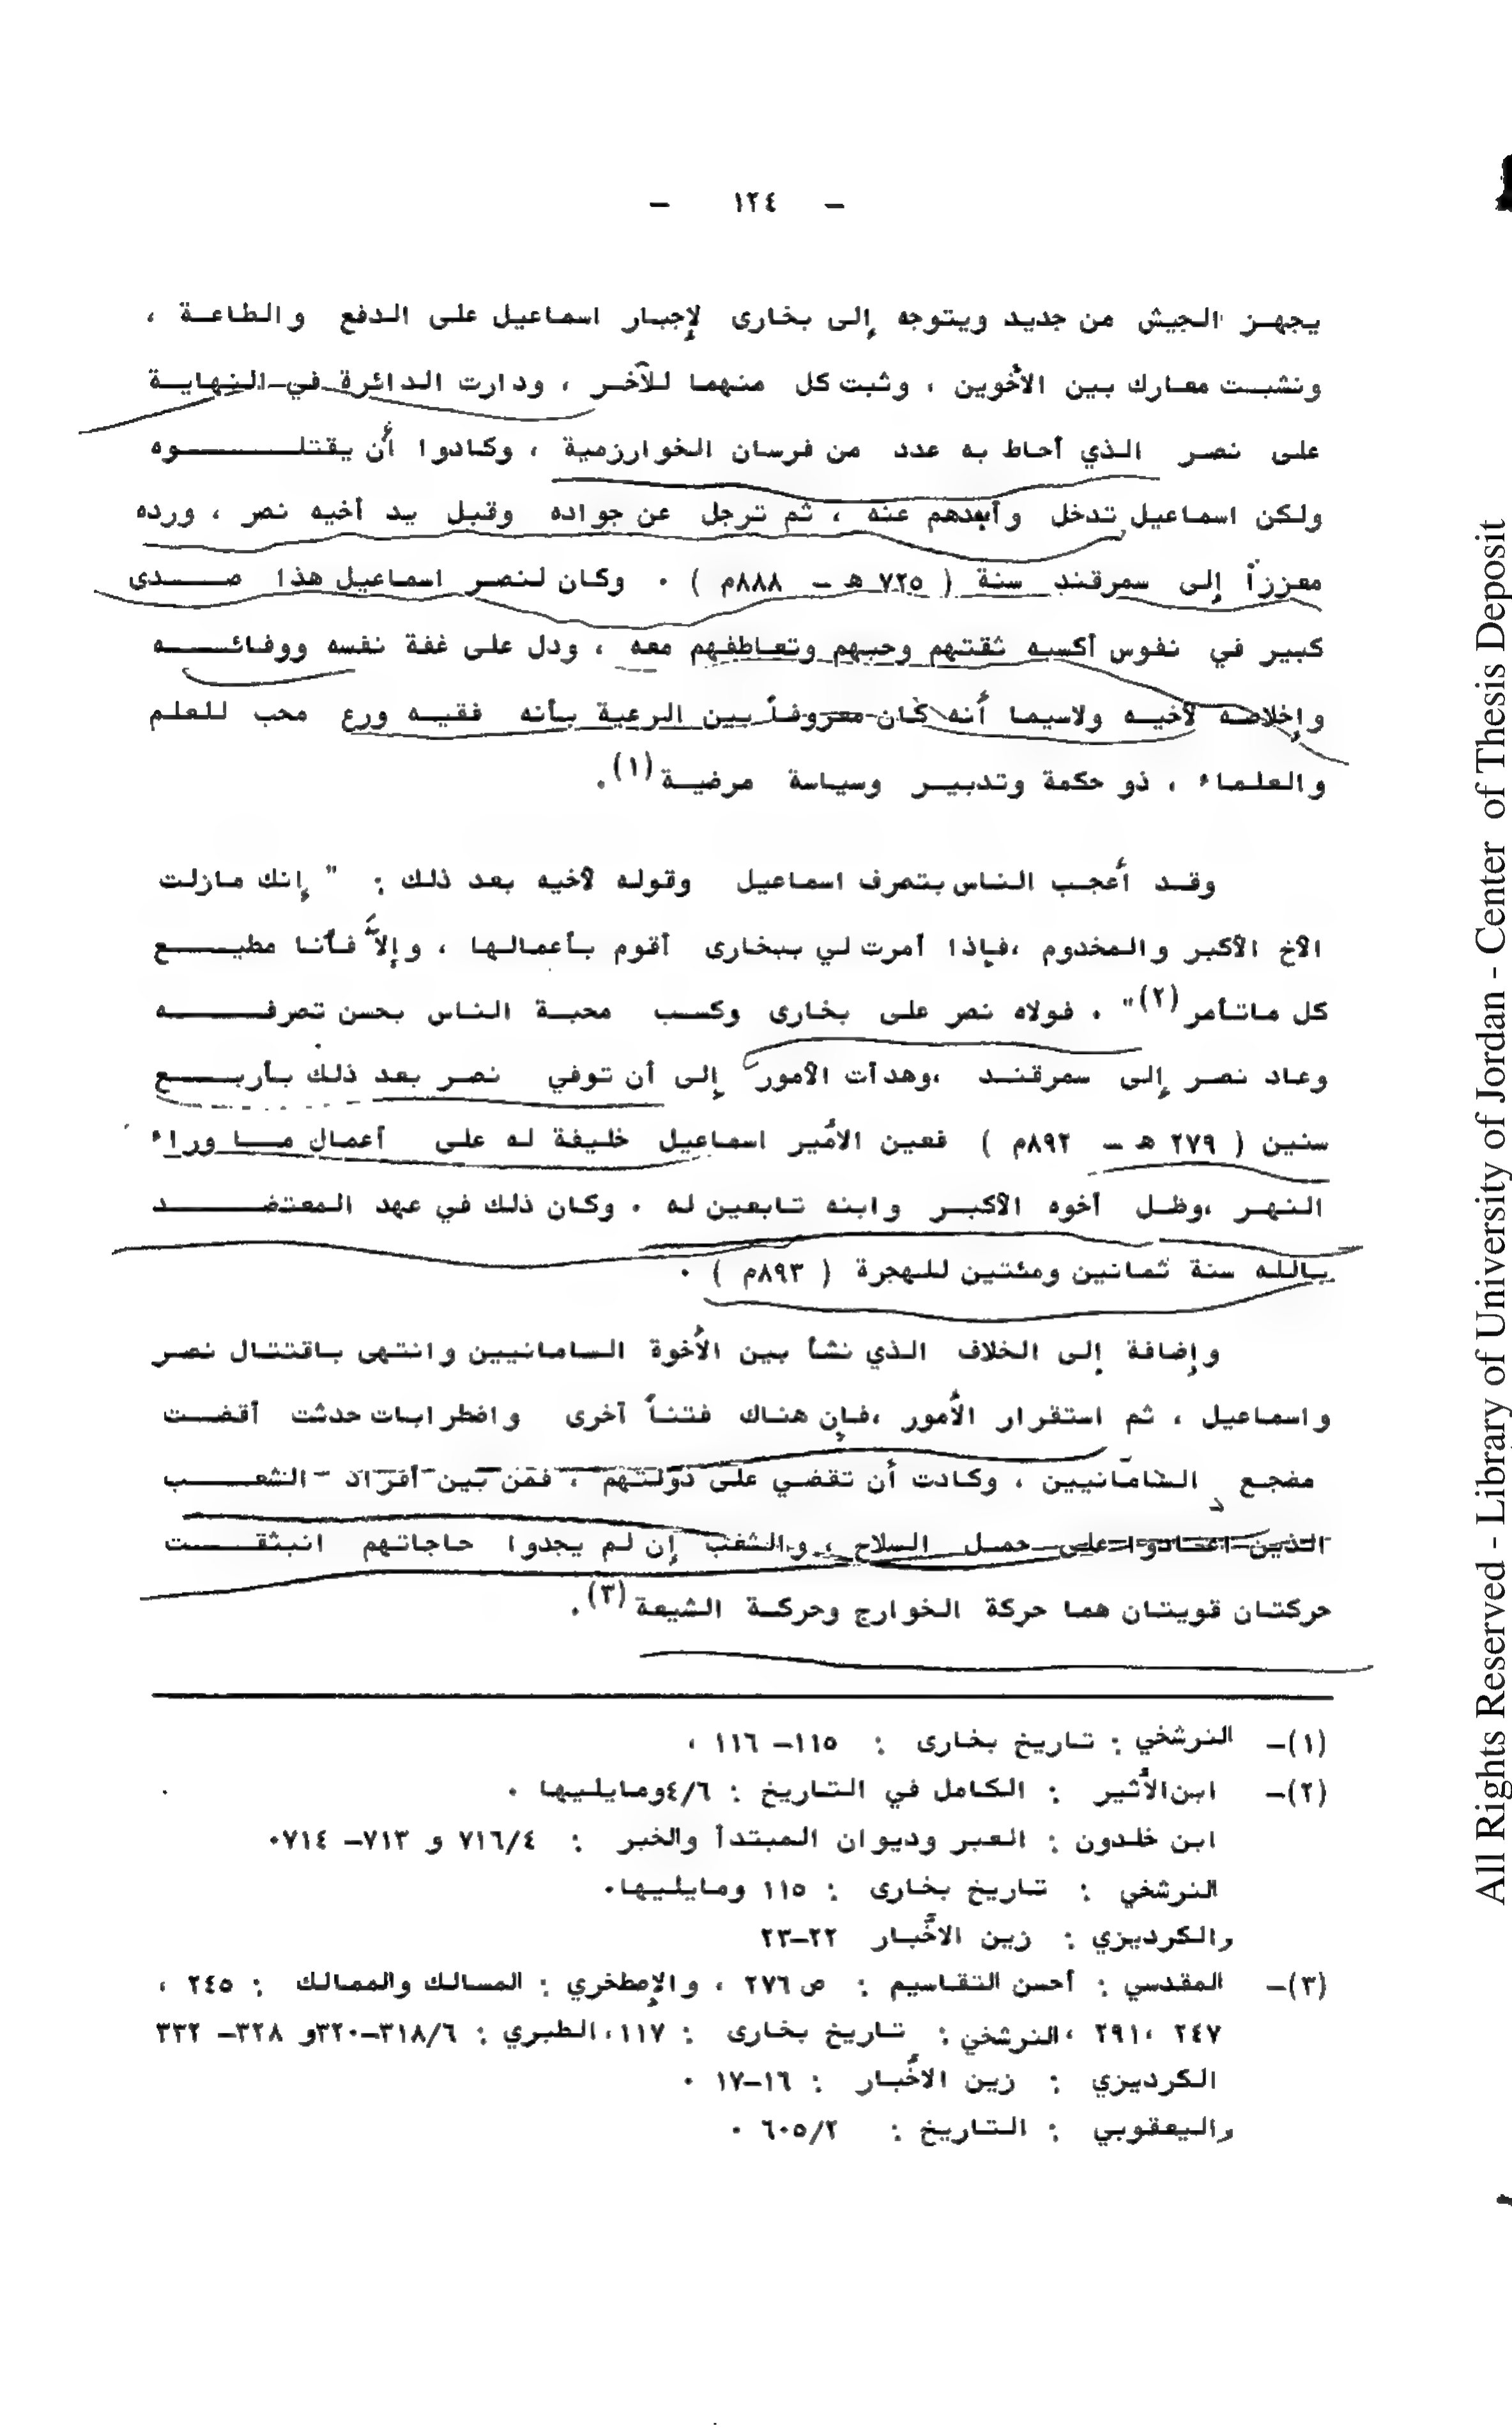 - ١٢٤ -
يجهز الجيش من جديد ويتوجه إلى بخارى لإجبار اسماعيل على الدفع والطاعة ،
ونشبت معارك بين الأخوين ، وثبت كل منهما للآخر ، ودارت الدائرة في النهاية
على نصر الذي أحاط به عدد من فرسان الخوارزمية ، وكادوا أن يقتلوه
ولكن اسماعيل تدخل وأبعدهم عنه ، ثم ترجل عن جواده وقبل يد أخيه نصر ، ورده
معززاً إلى سمرقند سنة ( ٧٢٥ هـ - ٨٨٨م ) . وكان لنصر اسماعيل هذا صدى
كبير في نفوس أكسبه ثقتهم وحبهم وتعاطفهم معه ، ودل على عفة نفسه ووفائه
وإخلاصه لأخيه ولاسيما أنه كان معروفاً بين الرعية بأنه فقيه ورع محب للعلم
والعلماء ، ذو حكمة وتدبير وسياسة مرضية (١).
وقد أعجب الناس بتصرف اسماعيل وقوله لأخيه بعد ذلك : " إنك مازلت
الأخ الأكبر والمخدوم ،فإذا أمرت لي ببخارى أقوم بأعمالها ، وإلاّ فأنا مطيع
كل ماتأمر (٢)" . فولاه نصر على بخارى وكسب محبة الناس بحسن تصرفه
وعاد نصر إلى سمرقند ،وهدأت الأمور إلى أن توفي نصر بعد ذلك بأربع
سنين ( ٢٧٩ هـ - ٨٩٢م ) فعين الأمير اسماعيل خليفة له على أعمال ما وراء
النهر ،وظل أخوه الأكبر وابنه تابعين له . وكان ذلك في عهد المعتضد
بالله سنة ثمانين ومئتين للهجرة ( ٨٩٣م ) .
وإضافة إلى الخلاف الذي نشأ بين الأخوة السامانيين وانتهى باقتتال نصر
واسماعيل ، ثم استقرار الأمور ،فإن هناك فتناً أخرى واضطرابات حدثت أقضت
مضجع السامانيين ، وكادت أن تقضي على دولتهم ، فمن بين أفراد الشعب
الذين اعتادوا على حمل السلاح ، والشغب إن لم يجدوا حاجاتهم انبثقت
حركتان قويتان هما حركة الخوارج وحركة الشيعة (٣).
(١)- النرشخي : تاريخ بخارى : ١١٥- ١١٦ ،
(٢)- ابن الأثير : الكامل في التاريخ : ٤/٦ومايليها .
ابن خلدون : العبر وديوان المبتدأ والخبر : ٧١٦/٤ و ٧١٣- ٧١٤.
النرشخي : تاريخ بخارى : ١١٥ ومايليها.
والكرديزي : زين الأخبار ٢٢-٢٣
(٣)- المقدسي : أحسن التقاسيم : ص ٢٧٦ ، والإصطخري : المسالك والممالك : ٢٤٥ ،
٢٤٧ ،٢٩١ ،النرشخي : تاريخ بخارى : ١١٧،الطبري : ٣١٨/٦-٣٢٠و ٣٢٨- ٣٣٢
الكرديزي : زين الأخبار : ١٦-١٧ .
واليعقوبي : التاريخ : ٦٠٥/٢ .
All Rights Reserved - Library of University of Jordan - Center of Thesis Deposit